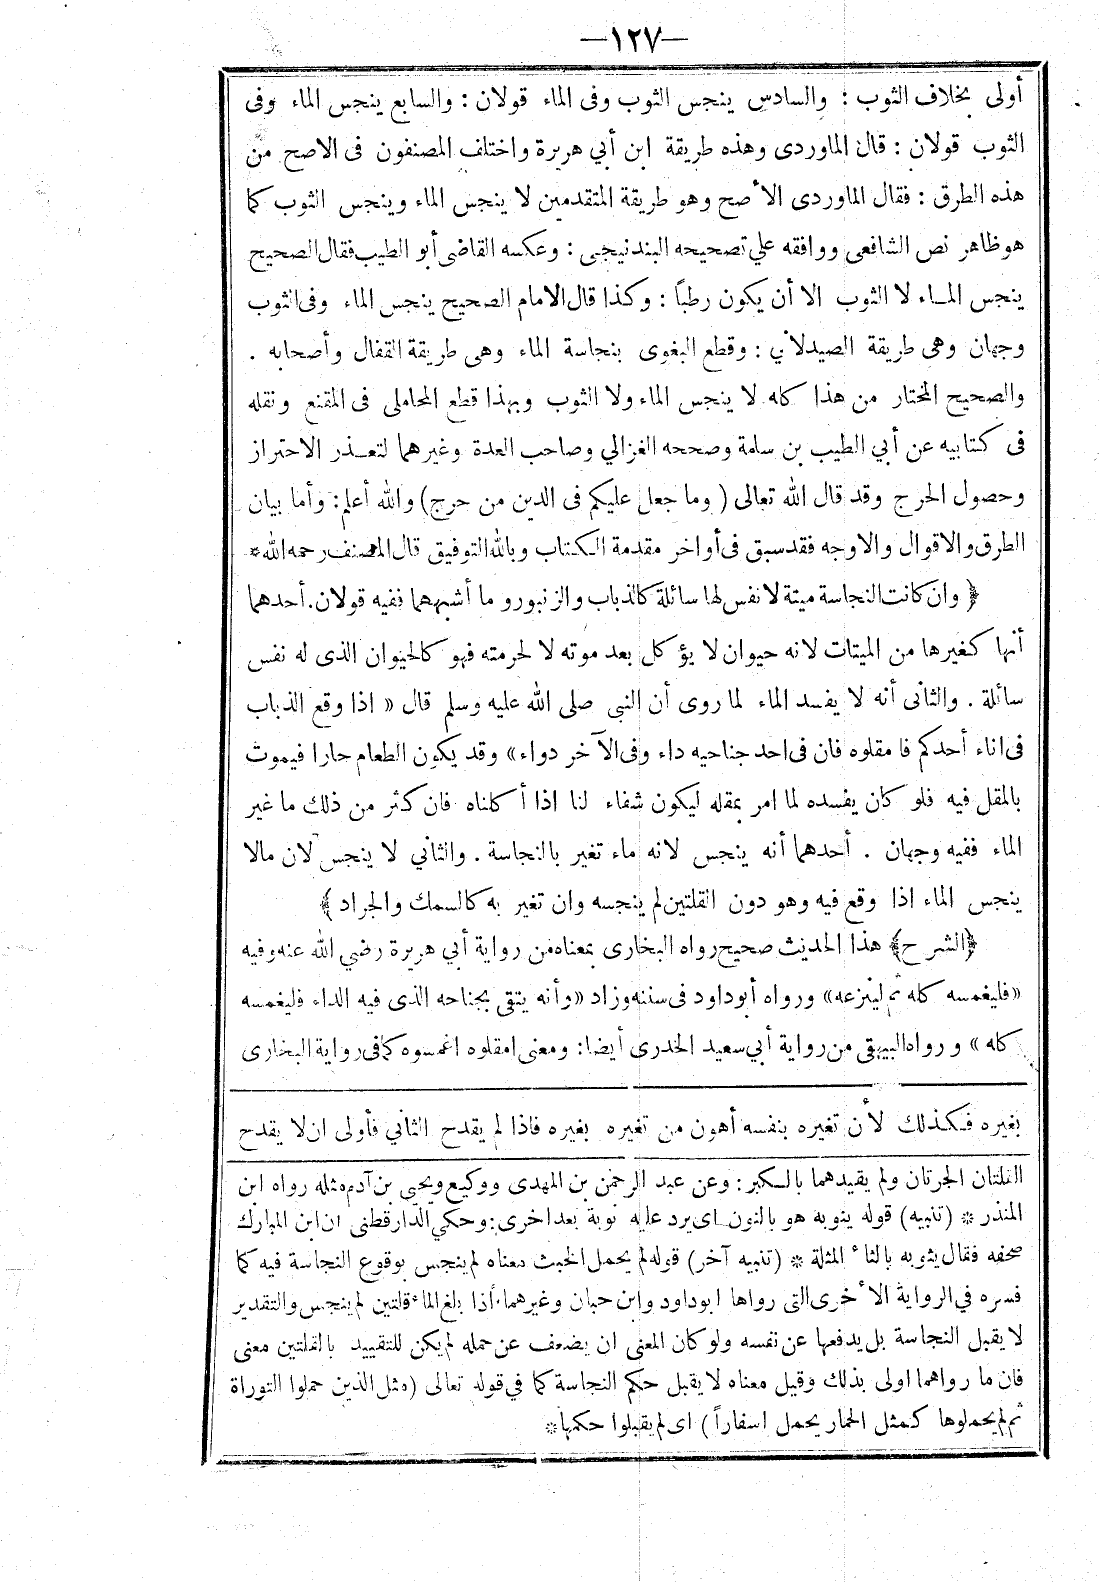 —١٢٧—
أولى بخلاف الثوب : والسادس ينجس الثوب وفى الماء قولان : والسابع ينجس الماء وفى
الثوب قولان : قال الماوردى وهذه طريقة ابن أبي هريرة واختلف المصنفون فى الاصح من
هذه الطرق : فقال الماوردى الأصح وهو طريقة المتقدمين لا ينجس الماء وينجس الثوب كما
هو ظاهر نص الشافعى ووافقه علي تصحيحه البندنيجى : وعكسه القاضى أبو الطيب فقال الصحيح
ينجس المـاء لا الثوب الا أن يكون رطباً : وكذا قال الامام الصحيح ينجس الماء وفى الثوب
وجهان وهى طريقة الصيدلاني : وقطع البغوى بنجاسة الماء وهى طريقة القفال وأصحابه .
والصحيح المختار من هذا كله لا ينجس الماء ولا الثوب وبهذا قطع المحاملى فى المقنع ونقله
فى كتابيه عن أبي الطيب بن سلمة وصححه الغزالي وصاحب العدة وغيرهما لتعـذر الاحتراز
وحصول الحرج وقد قال الله تعالى ( وما جعل عليكم فى الدين من حرج) والله أعلم : وأما بيان
الطرق والاقوال والاوجه فقد سبق فى أواخر مقدمة الكتاب وبالله التوفيق قال المصنف رحمه الله *
﴿ وان كانت النجاسة ميتة لا نفس لها سائلة كالذباب والزنبور و ما أشبههما ففيه قولان . أحدهما
أنها كغيرها من الميتات لانه حيوان لا يؤكل بعد موته لا لحرمته فهو كالحيوان الذى له نفس
سائلة . والثانى أنه لا يفسد الماء لما روى أن النبى صلى الله عليه وسلم قال « اذا وقع الذباب
فى اناء أحدكم فامقلوه فان فى احد جناحيه داء وفى الآخر دواء» وقد يكون الطعام حارا فيموت
بالمقل فيه فلو كان يفسده لما امر بمقله ليكون شفاء لنا اذا أكلناه فان كثر من ذلك ما غير
الماء ففيه وجهان . أحدهما أنه ينجس لانه ماء تغير بالنجاسة . والثاني لا ينجس لان مالا
ينجس الماء اذا وقع فيه وهو دون القلتين لم ينجسه وان تغير به كالسمك والجراد ﴾
﴿الشرح﴾ هذا الحديث صحيح رواه البخارى بمعناه من رواية أبي هريرة رضي الله عنه وفيه
«فليغمسه كله ثم لينزعه» ورواه أبو داود فى سننه وزاد «وأنه يتقى بجناحه الذى فيه الداء فليغمسه
كله » ورواه البيهقى من رواية أبي سعيد الخدرى أيضا : ومعنى امقلوه اغمسوه كما فى رواية البخارى
بغيره فـكـذلك لأن تغيره بنفسه أهون من تغيره بغيره فاذا لم يقدح الثاني فأولى ان لا يقدح
القلتان الجرتان ولم يقيدهما بالكبر : وعن عبد الرحمن بن المهدى ووكيع ويحيى بن آدم مثله رواه ابن
المنذر * (تنبيه) قوله ينوبه هو بالنون اى يرد عليه نوبة بعد اخرى : وحكي الدارقطنى ان ابن المبارك
صحفه فقال يثوبه بالثاء المثلة * (تنبيه آخر) قوله لم يحمل الخبث معناه لم ينجس بوقوع النجاسة فيه كما
فسره في الرواية الأخرى التى رواها ابو داود وابن حبان وغيرهما اذا بلغ الماء قلتين لم ينجس والتقدير
لا يقبل النجاسة بل يدفعها عن نفسه ولو كان المعنى ان يضعف عن حمله لم يكن للتقييد بالقلتين معنى
فان ما رواهما اولى بذلك وقيل معناه لا يقبل حكم النجاسة كما في قوله تعالى (مثل الذين حملوا التوراة
ثم لم يحملوها كمثل الحمار يحمل اسفاراً ) اى لم يقبلوا حكمها *